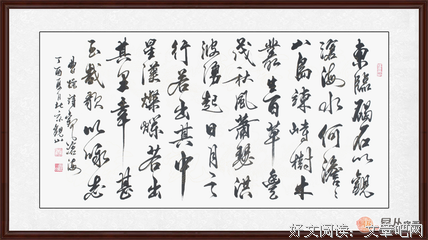 東臨碣石以觀
滄海水何澹々
山島竦峙樹木
叢生百草豐
茂秋風蕭瑟洪
波湧起日月之
行若出其中
星漢燦爛若出
其里幸甚
至哉歌以詠志
曹操詩觀滄海
丁酉夏月北京觀山
好文阅读：文章吧网